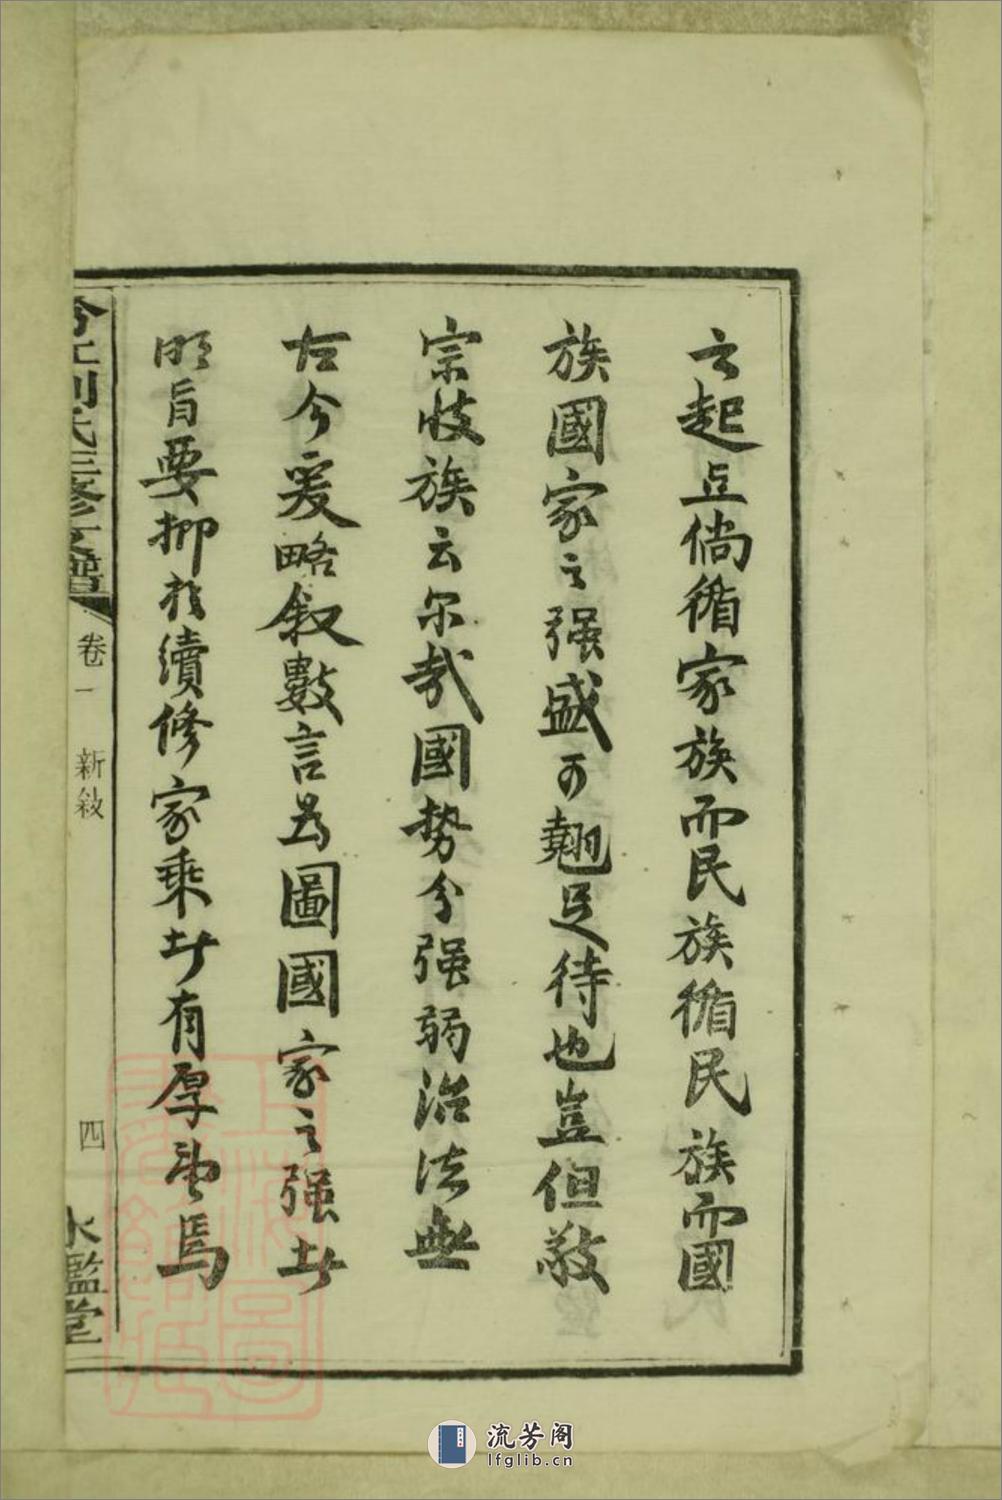 之起点倘循家族而民族循民族而國
族國家之强盛可翹足待也豈但敬
宗收族云尔哉國勢分强弱治法無
古今爰略叙數言为圖國家之强者
明旨要抑於續修家乘者有厚望焉
劉氏三修支譜
卷一
新敍
四
水鑑堂
流芳阁
lfglib.cn